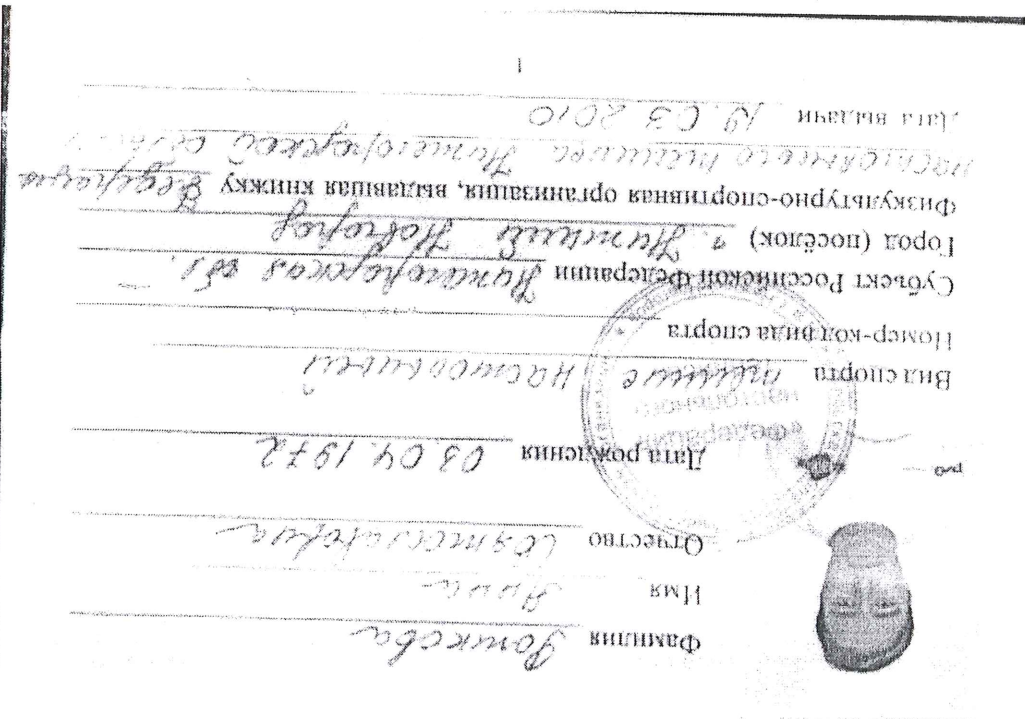 Фамилия
Имя Анна
Отчество Святославовна
Дата рождения 03.04.1972
Вид спорта теннис настольный
Номер-код вида спорта
Субъект Российской Федерации Нижегородская обл.
Город (посёлок) г. Нижний Новгород
Физкультурно-спортивная организация, выдавшая книжку Федерация
настольного тенниса Нижегородской области
Дата выдачи 19.03.2010
1
Федерация
настольного